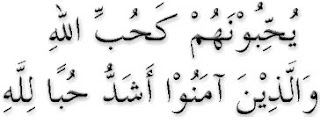 يُحِبُّوْنَهُمْ كَحُبِّ اللهِ
وَالَّذِيْنَ آمَنُوْا أَشَدُّ حُبًا لِلَّهِ